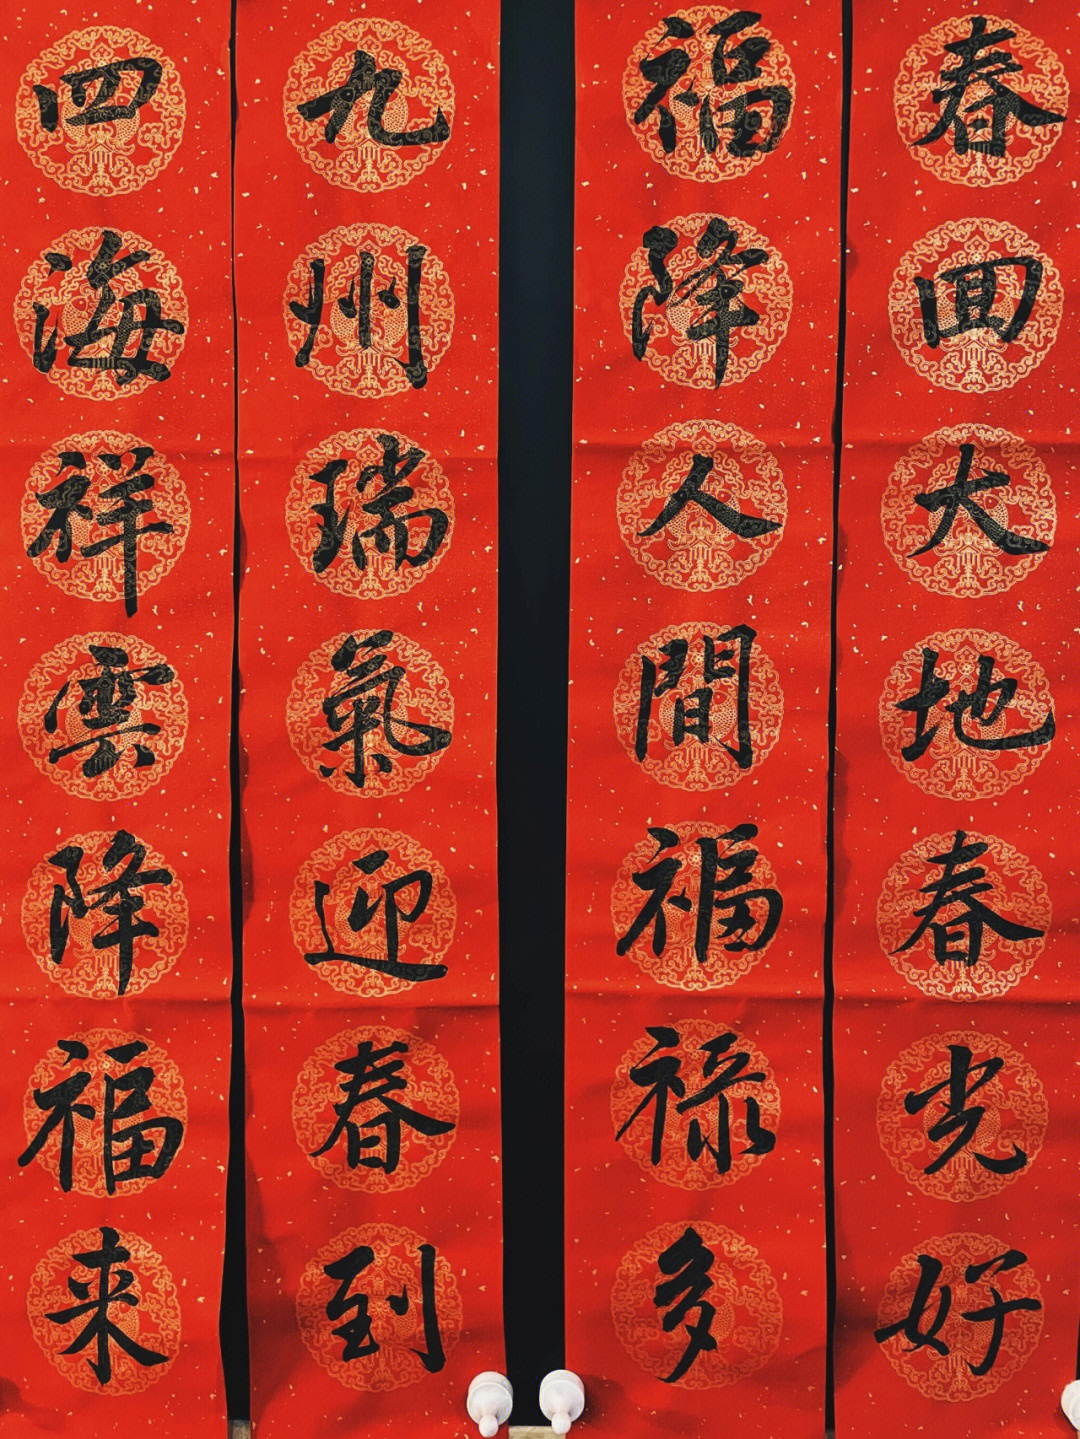 春回大地春光好
福降人間福禄多
九州瑞氣迎春到
四海祥雲降福来